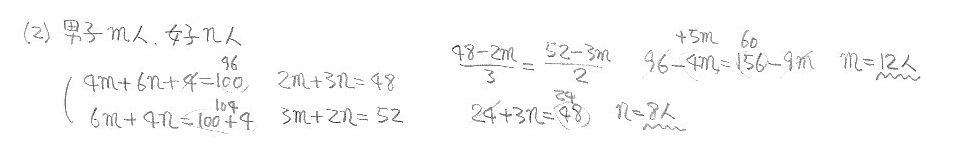 (2) 男子m人、女子n人
96
4m+6n+4=100, 2m+3n=48
104
6m+4n=100+4 3m+2n=52
48-2m/3 = 52-3m/2
+5m 60
96-4m=156-9m m=12人
24
24+3n=48, n=8人